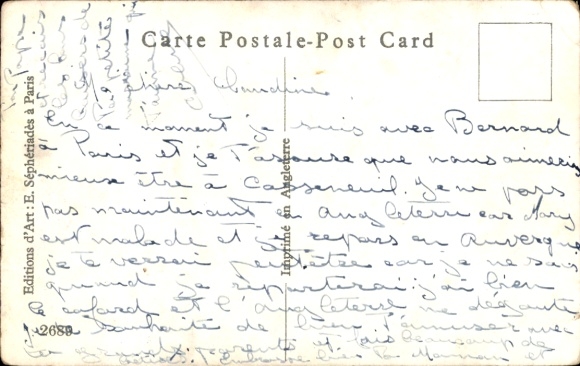 Carte Postale-Post Card
chère Claudine.
En ce moment je suis avec Bernard
à Paris et je t'assure que nous aimerions
mieux être à Casseneuil. Je ne pars
pas maintenant en Angleterre car Mary
est malade et je repars en Auvergne
je te verrai peut être car je ne sais
quand je repartirai j'ai bien
le cafard et l'Angleterre me dégoûte
je te souhaite de bien t'amuser avec
tes grands parents et fais beaucoup de
Embrasse bien ta Maman et
ton Papa
baisers de
ta petite
qui
t'aime
Editions d'Art : E. Séphériadès à Paris
Imprimé en Angleterre
2689